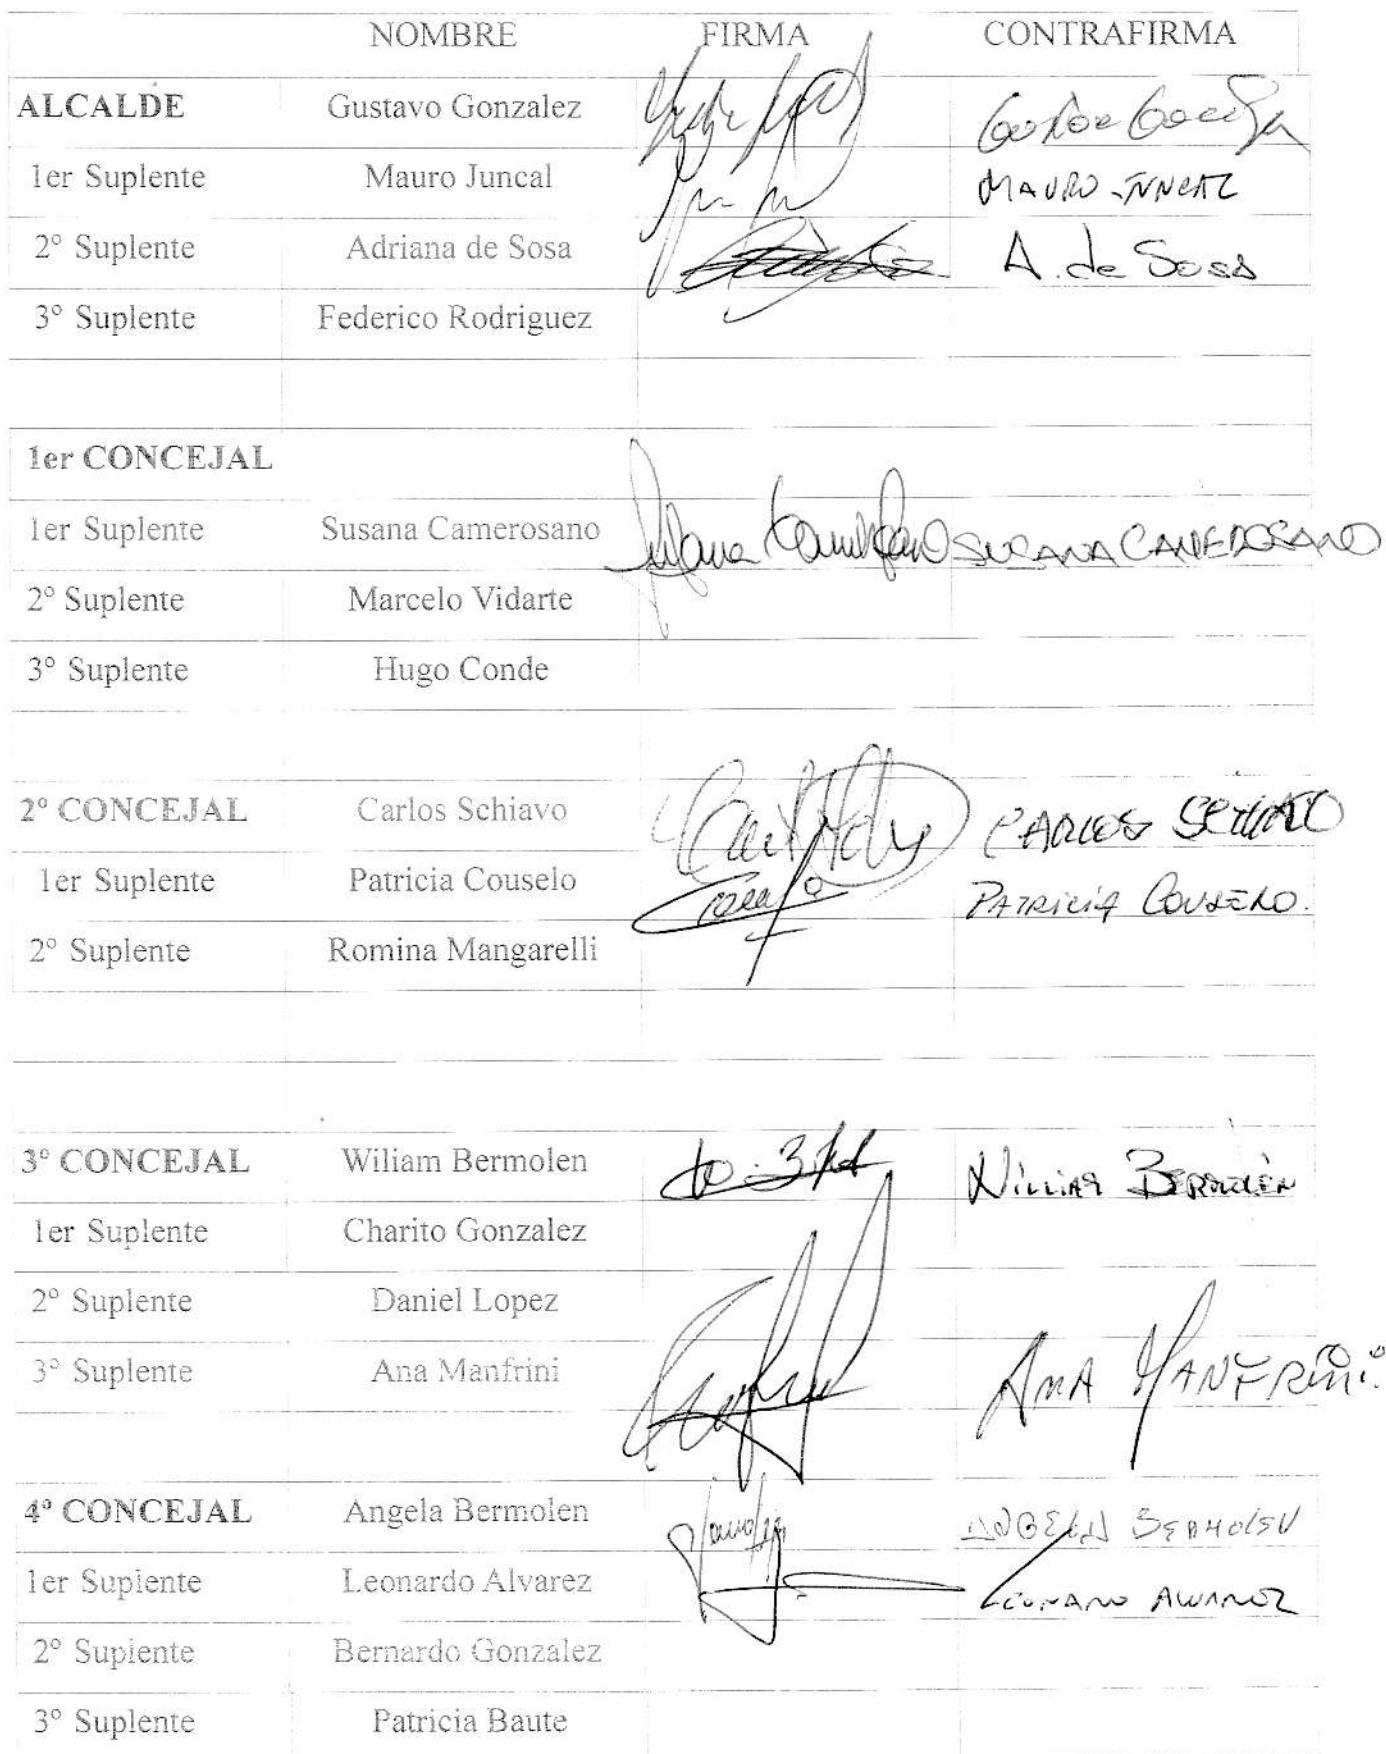 NOMBRE FIRMA CONTRAFIRMA
ALCALDE Gustavo Gonzalez
1er Suplente Mauro Juncal MAURO JUNCAL
2° Suplente Adriana de Sosa A. de Sosa
3° Suplente Federico Rodriguez
1er CONCEJAL
1er Suplente Susana Camerosano Susana Camerosano SUSANA CAMEROSANO
2° Suplente Marcelo Vidarte
3° Suplente Hugo Conde
2º CONCEJAL Carlos Schiavo CARLOS SCHIAVO
1er Suplente Patricia Couselo PATRICIA COUSELO.
2° Suplente Romina Mangarelli
3º CONCEJAL Wiliam Bermolen William BERMOLEN
1er Suplente Charito Gonzalez
2° Suplente Daniel Lopez
3° Suplente Ana Manfrini ANA MANFRINI
4º CONCEJAL Angela Bermolen ANGELA BERMOLEN
1er Suplente Leonardo Alvarez LEONARDO ALVAREZ
2° Suplente Bernardo Gonzalez
3° Suplente Patricia Baute